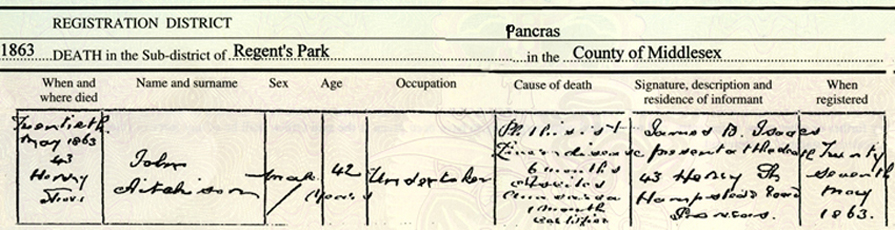 REGISTRATION DISTRICT
Pancras
1863 DEATH in the Sub-district of Regent's Park in the County of Middlesex
When and where died
Name and surname
Sex
Age
Occupation
Cause of death
Signature, description and residence of informant
When registered
Twentieth
May 1863
43
John
Aitchison
male
42
years
Undertaker
Phthisis &
6 months
Ascites
1 month
Certified
James B. Isaacs
present at the death
43
Hampstead Road
Pancras.
Twenty
seventh
May
1863.